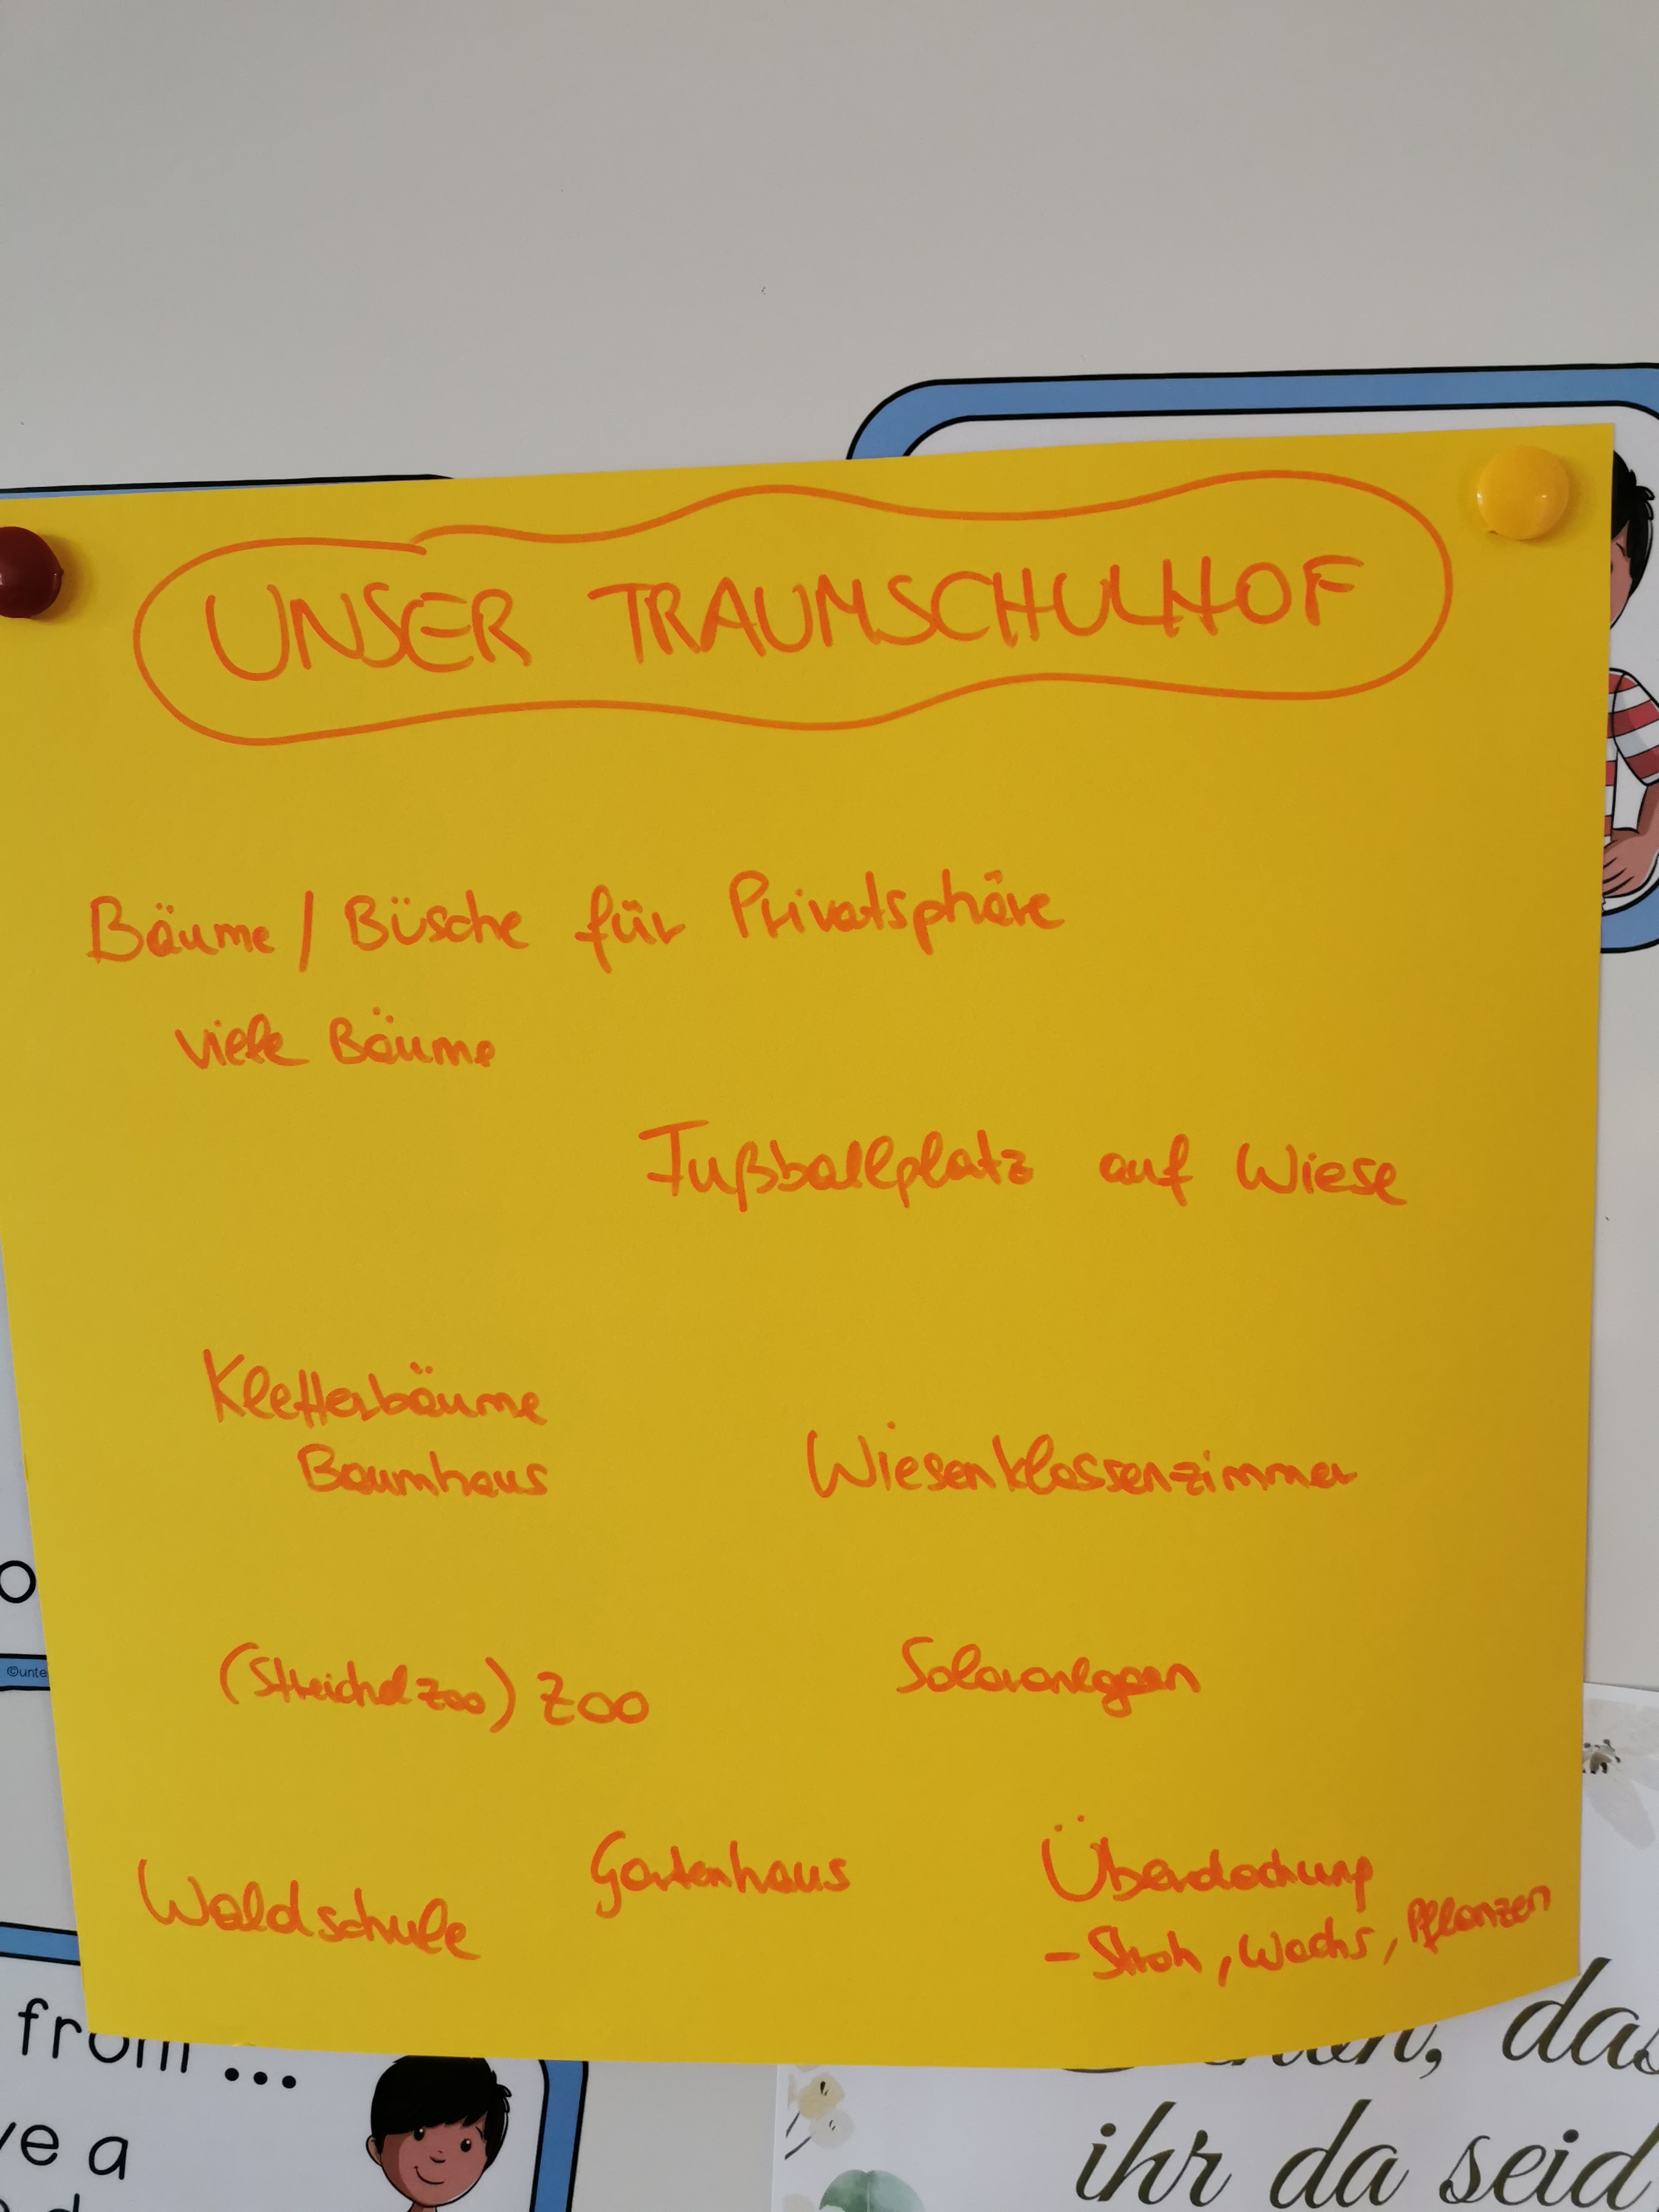 UNSER TRAUMSCHULHOF
Bäume / Büsche für Privatsphäre
viele Bäume
Fußballplatz auf Wiese
Kletterbäume
Baumhaus
Wiesenklassenzimmer
(Streichelzoo) Zoo
Solaranlagen
Waldschule
Gartenhaus
Überdachung
- Stroh, Wachs, Pflanzen
o
©unte
from ...
ve a
, das
ihr da seid